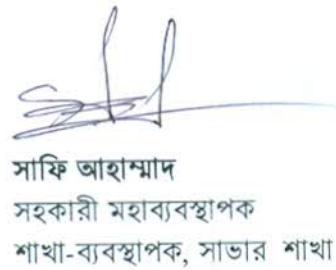 সাফি আহাম্মাদ
সহকারী মহাব্যবস্থাপক
শাখা-ব্যবস্থাপক, সাভার শাখা